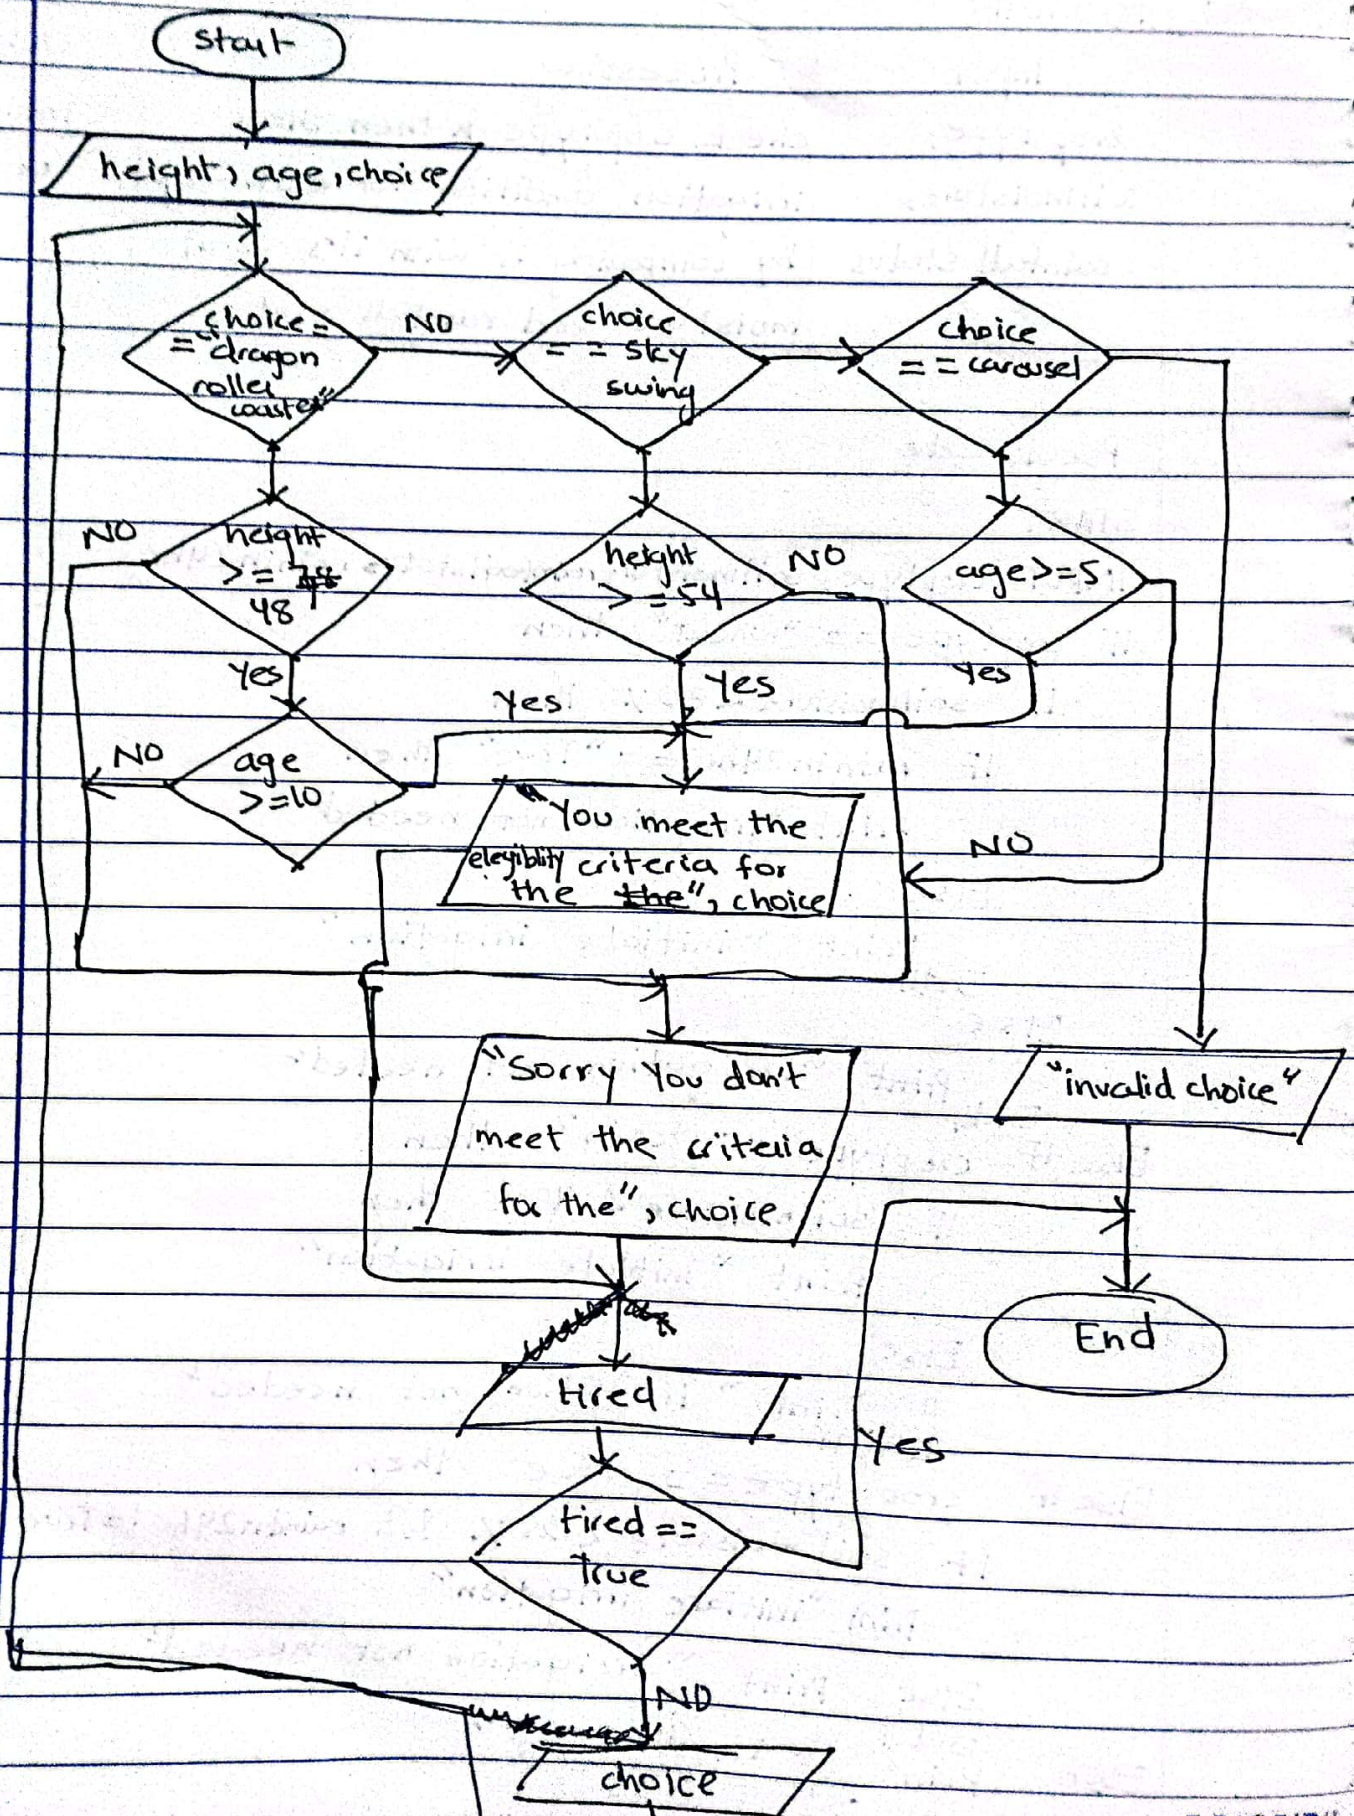 start
height, age, choice
choice =
= "dragon
roller
coaster"
NO
choice
= = sky
swing
choice
= = carousel
NO
height
>=
48
height
>= 54
NO
age >= 5
Yes
Yes
Yes
Yes
NO
age
>=10
"You meet the
elegiblity criteria for
the the", choice
NO
"Sorry You don't
meet the criteria
for the", choice
"invalid choice"
End
tired
Yes
tired ==
True
NO
choice